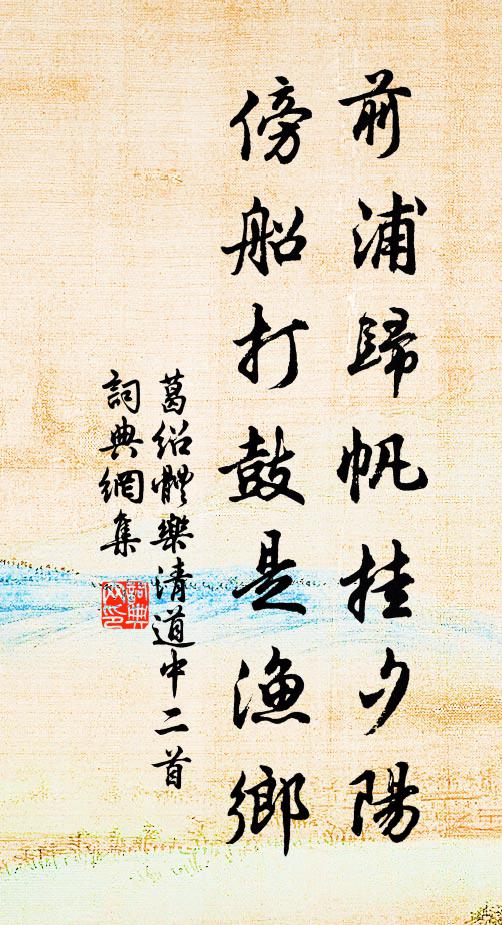 前浦歸帆挂夕陽
傍船打鼓是漁鄉
葛绍體樂清道中二首
詞典網集